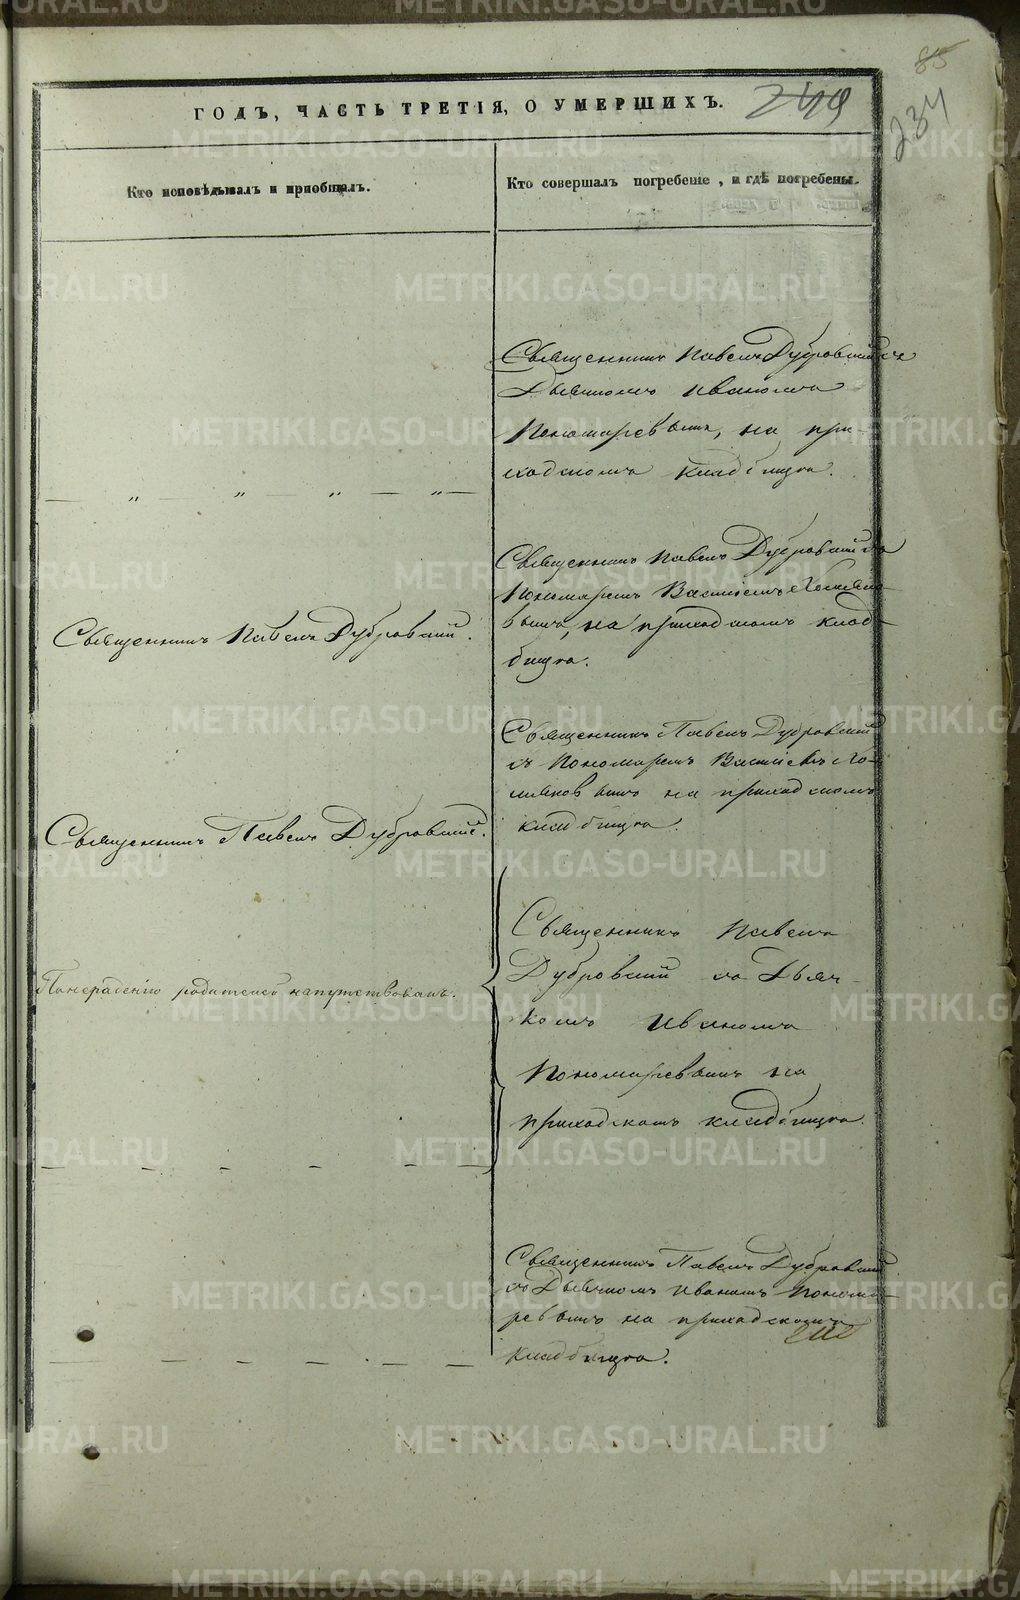 85
234
ГОДЪ, ЧАСТЬ ТРЕТІЯ, О УМЕРШИХЪ.
249
Кто исповѣдывалъ и приобщалъ.
Кто совершалъ погребеніе, и гдѣ погребены.
Священникъ Павелъ Дубровскій съ
Дьячкомъ Иваномъ
Пономаревымъ, на при-
ходскомъ кладбищѣ.
— „ — „ — „ — „ —
Священникъ Павелъ Дубровскій съ
Пономаремъ Василіемъ Хомяко-
вымъ, на приходскомъ клад-
бищѣ.
Священникъ Павелъ Дубровскій.
Священникъ Павелъ Дубровскій
съ Пономаремъ Василіемъ Хо-
мяковымъ на приходскомъ
кладбищѣ.
Священникъ Павелъ Дубровскій.
Священникъ Павелъ
Дубровскій съ Дьяч-
комъ Иваномъ
Пономаревымъ на
приходскомъ кладбищѣ.
По нераденію родителей напутствованъ.
— — — — — —
Священникъ Павелъ Дубровскій
съ Дьячкомъ Иваномъ Понома-
ревымъ на приходскомъ
кладбищѣ.
— — — — — —
METRIKI.GASO-URAL.RU